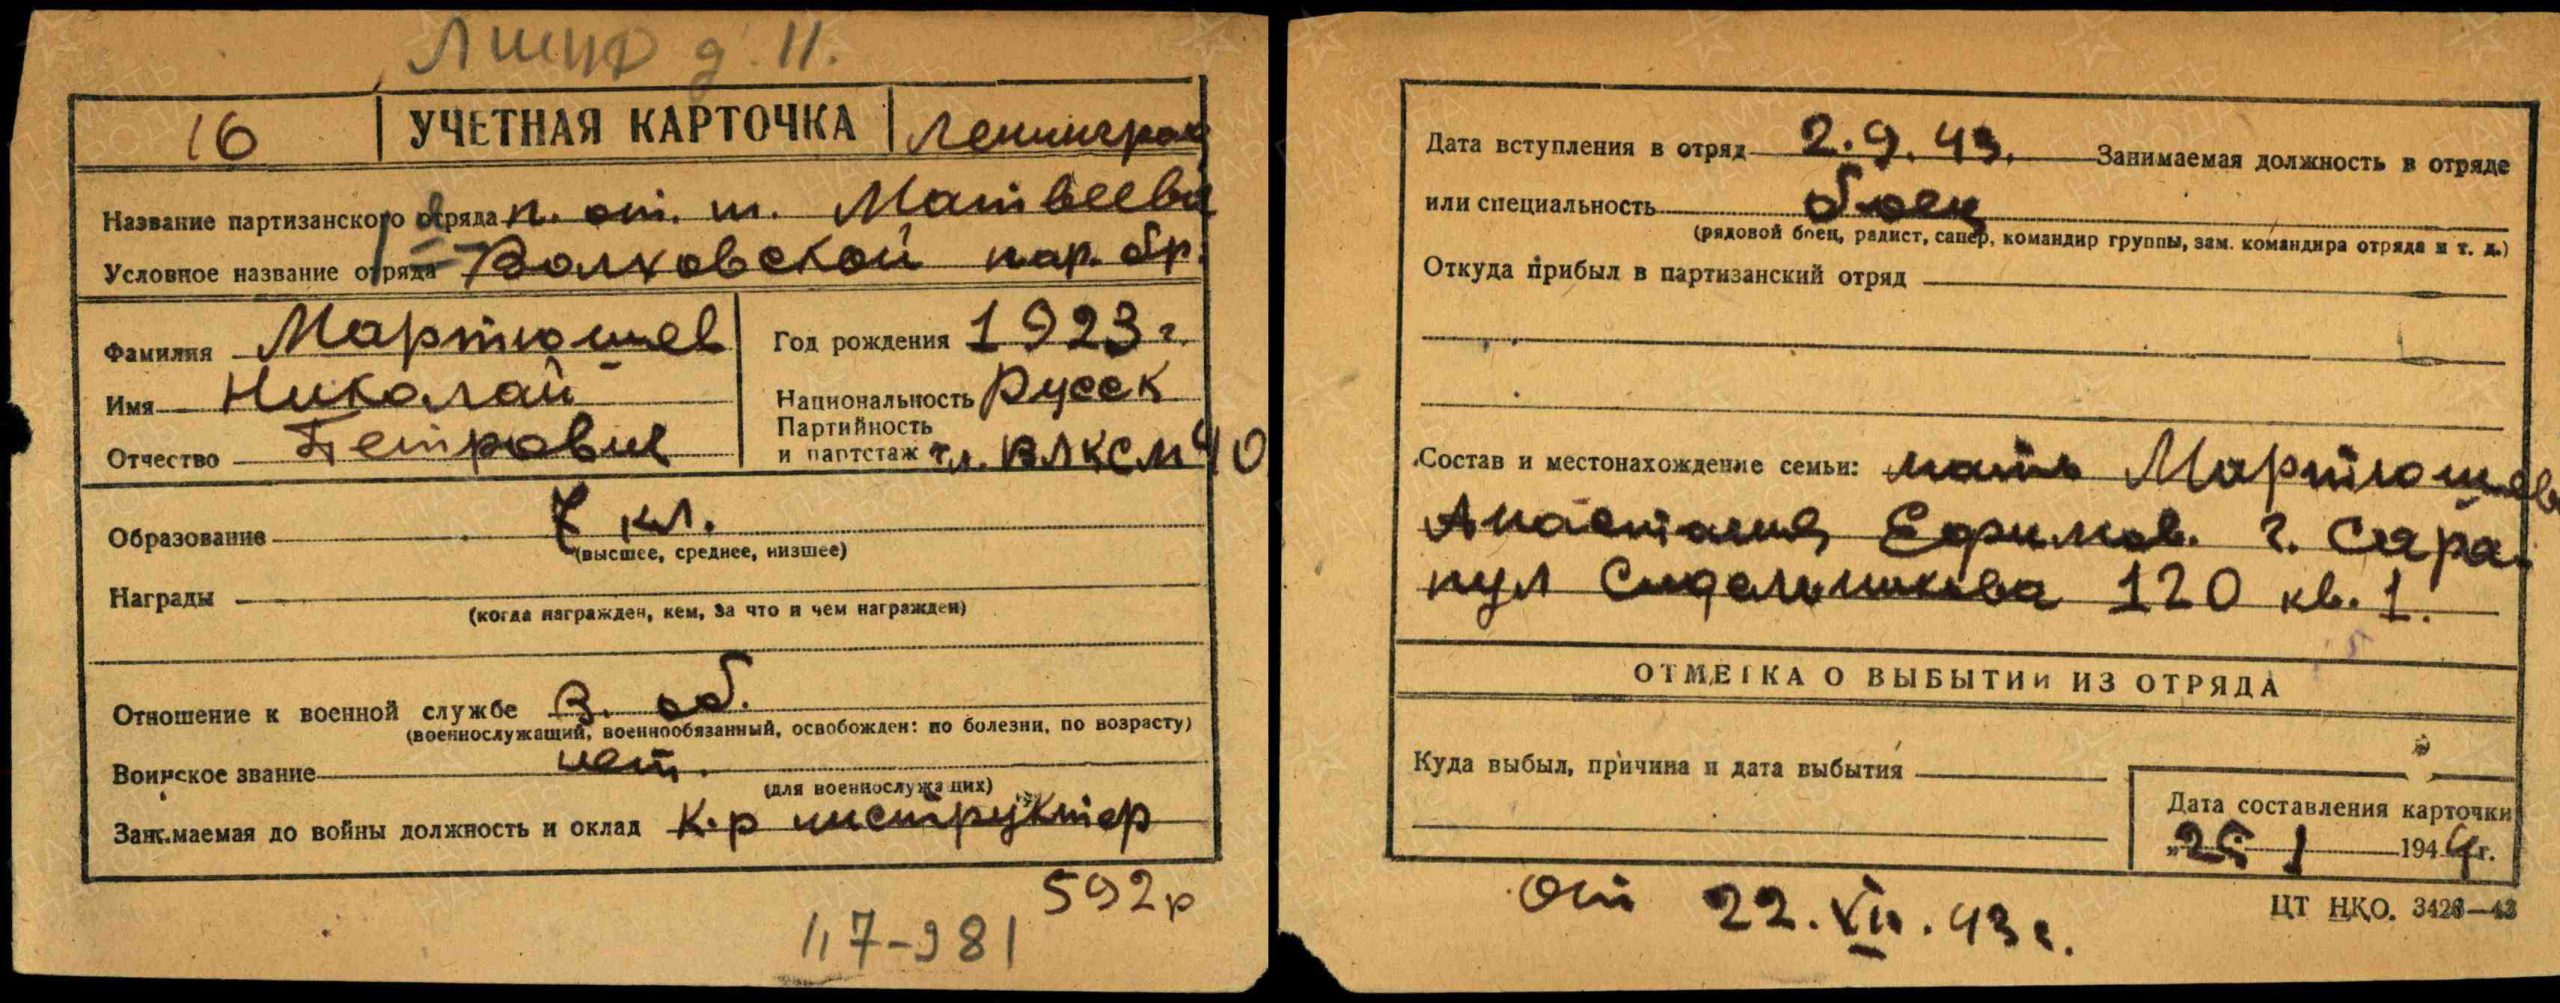 д. 11.
16 УЧЕТНАЯ КАРТОЧКА Ленинград
Название партизанского отряда п. от. т. Матвеева
Условное название отряда Волховской пар. бр.
Фамилия Мартюшев
Имя Николай
Отчество Петрович
Год рождения 1923 г.
Национальность Русск
Партийность
и партстаж чл. ВЛКСМ 40
Образование 7 кл.
(высшее, среднее, низшее)
Награды
(когда награжден, кем, за что и чем награжден)
Отношение к военной службе В. об.
(военнослужащий, военнообязанный, освобожден: по болезни, по возрасту)
Воинское звание нет.
(для военнослужащих)
Занимаемая до войны должность и оклад К.р инструктор
592 р
117-981
Дата вступления в отряд 2.9.43. Занимаемая должность в отряде
или специальность боец
(рядовой боец, радист, сапер, командир группы, зам. командира отряда и т. д.)
Откуда прибыл в партизанский отряд
Состав и местонахождение семьи: мать Мартюшев
Анастасия Ефимов. г. Сара-
пул Сидельникова 120 кв. 1.
ОТМЕТКА О ВЫБЫТИИ ИЗ ОТРЯДА
Куда выбыл, причина и дата выбытия
Дата составления карточки
„25 1 1944 г.
От 22.XII.43 г.
ЦТ НКО. 3426—43